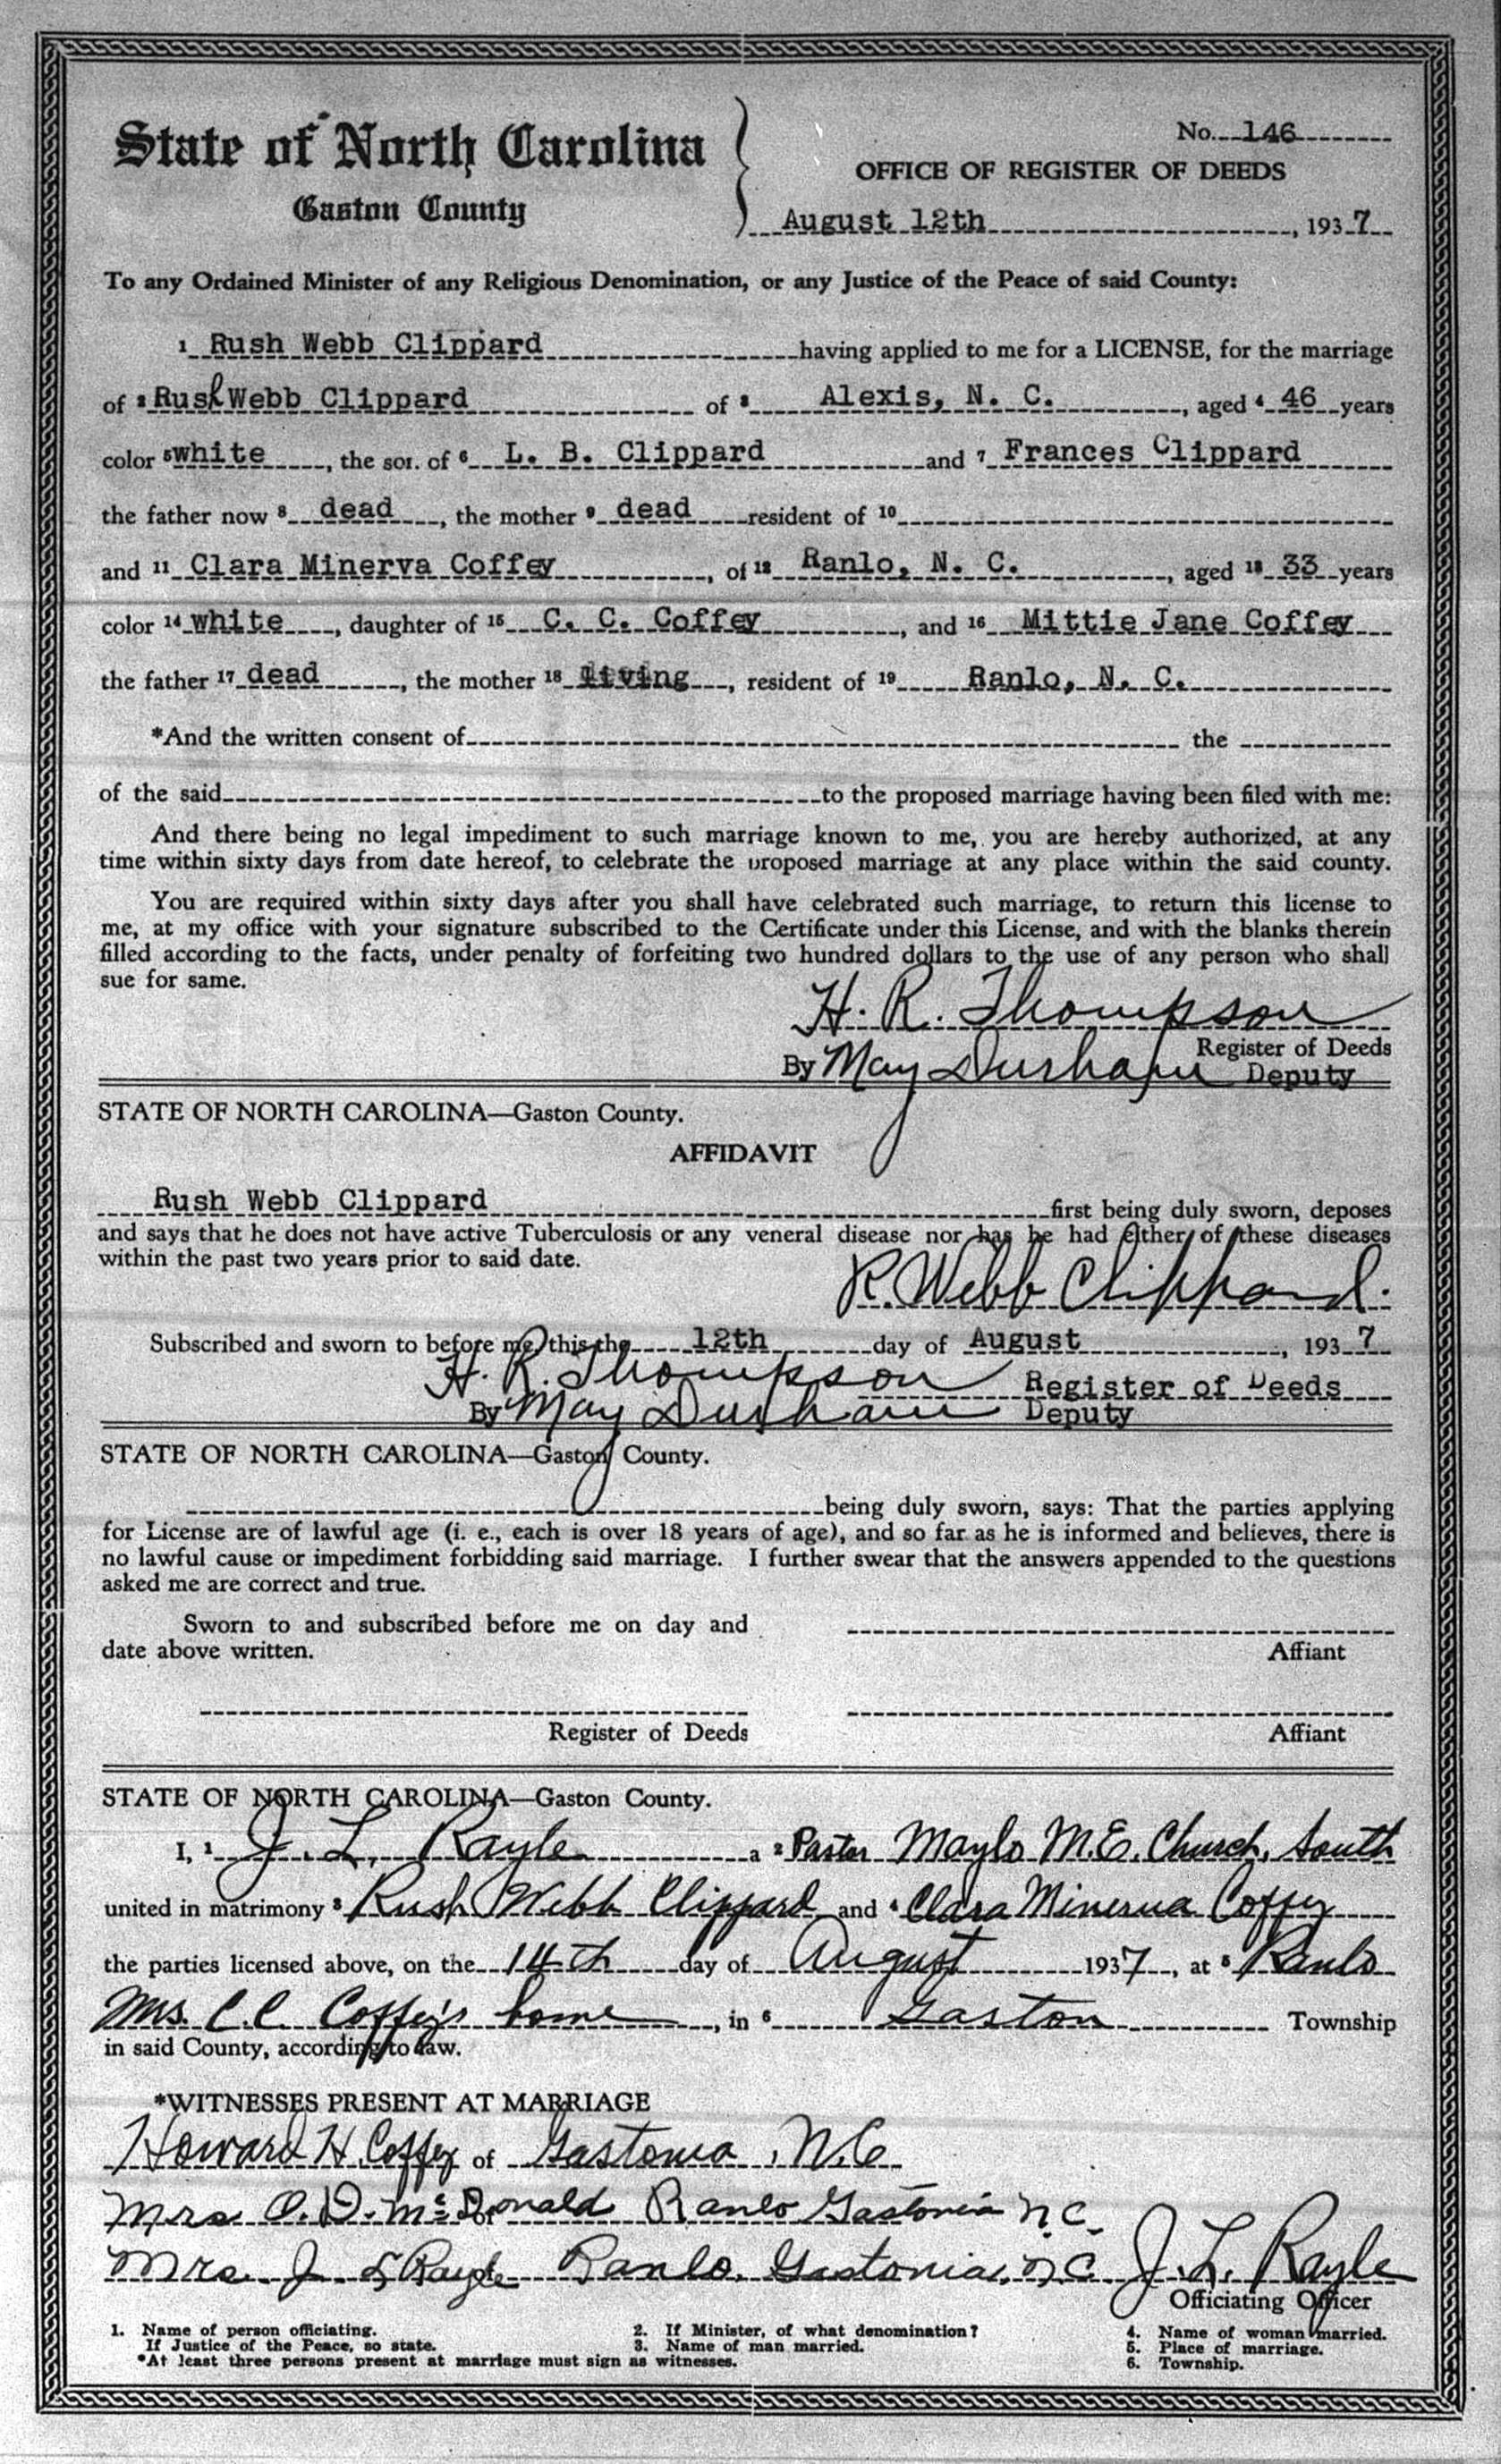 State of North Carolina
Gaston County
No. 146
OFFICE OF REGISTER OF DEEDS
August 12th, 1937
To any Ordained Minister of any Religious Denomination, or any Justice of the Peace of said County:
1 Rush Webb Clippard having applied to me for a LICENSE, for the marriage
of 2 Rush Webb Clippard of 3 Alexis, N. C., aged 4 46 years
color 5 white, the son of 6 L. B. Clippard and 7 Frances Clippard
the father now 8 dead, the mother 9 dead resident of 10
and 11 Clara Minerva Coffey, of 12 Ranlo, N. C., aged 13 33 years
color 14 white, daughter of 15 C. C. Coffey, and 16 Mittie Jane Coffey
the father 17 dead, the mother 18 living, resident of 19 Ranlo, N. C.
*And the written consent of the
of the said to the proposed marriage having been filed with me:
And there being no legal impediment to such marriage known to me, you are hereby authorized, at any
time within sixty days from date hereof, to celebrate the proposed marriage at any place within the said county.
You are required within sixty days after you shall have celebrated such marriage, to return this license to
me, at my office with your signature subscribed to the Certificate under this License, and with the blanks therein
filled according to the facts, under penalty of forfeiting two hundred dollars to the use of any person who shall
sue for same.
H. R. Thompson
Register of Deeds
By May Durham Deputy
STATE OF NORTH CAROLINA—Gaston County.
AFFIDAVIT
Rush Webb Clippard first being duly sworn, deposes
and says that he does not have active Tuberculosis or any veneral disease nor has he had either of these diseases
within the past two years prior to said date.
R. Webb Clippard.
Subscribed and sworn to before me, this the 12th day of August, 1937
H. R. Thompson Register of Deeds
By May Durham Deputy
STATE OF NORTH CAROLINA—Gaston County.
being duly sworn, says: That the parties applying
for License are of lawful age (i. e., each is over 18 years of age), and so far as he is informed and believes, there is
no lawful cause or impediment forbidding said marriage. I further swear that the answers appended to the questions
asked me are correct and true.
Sworn to and subscribed before me on day and
date above written.
Affiant
Register of Deeds
Affiant
STATE OF NORTH CAROLINA—Gaston County.
I, 1 J. L. Rayle a 2 Pastor Maylo M.E. Church, South
united in matrimony 3 Rush Webb Clippard and 4 Clara Minerva Coffey
the parties licensed above, on the 14th day of August 1937, at 5 Ranlo
Mrs. C.C. Coffey's home, in 6 Gaston Township
in said County, according to law.
*WITNESSES PRESENT AT MARRIAGE
Howard H. Coffey of Gastonia, N.C.
Mrs O. D. McDonald Ranlo Gastonia N.C.
Mrs. J. L Rayle Ranlo, Gastonia, N.C.
J. L. Rayle
Officiating Officer
1. Name of person officiating.
If Justice of the Peace, so state.
*At least three persons present at marriage must sign as witnesses.
2. If Minister, of what denomination?
3. Name of man married.
4. Name of woman married.
5. Place of marriage.
6. Township.